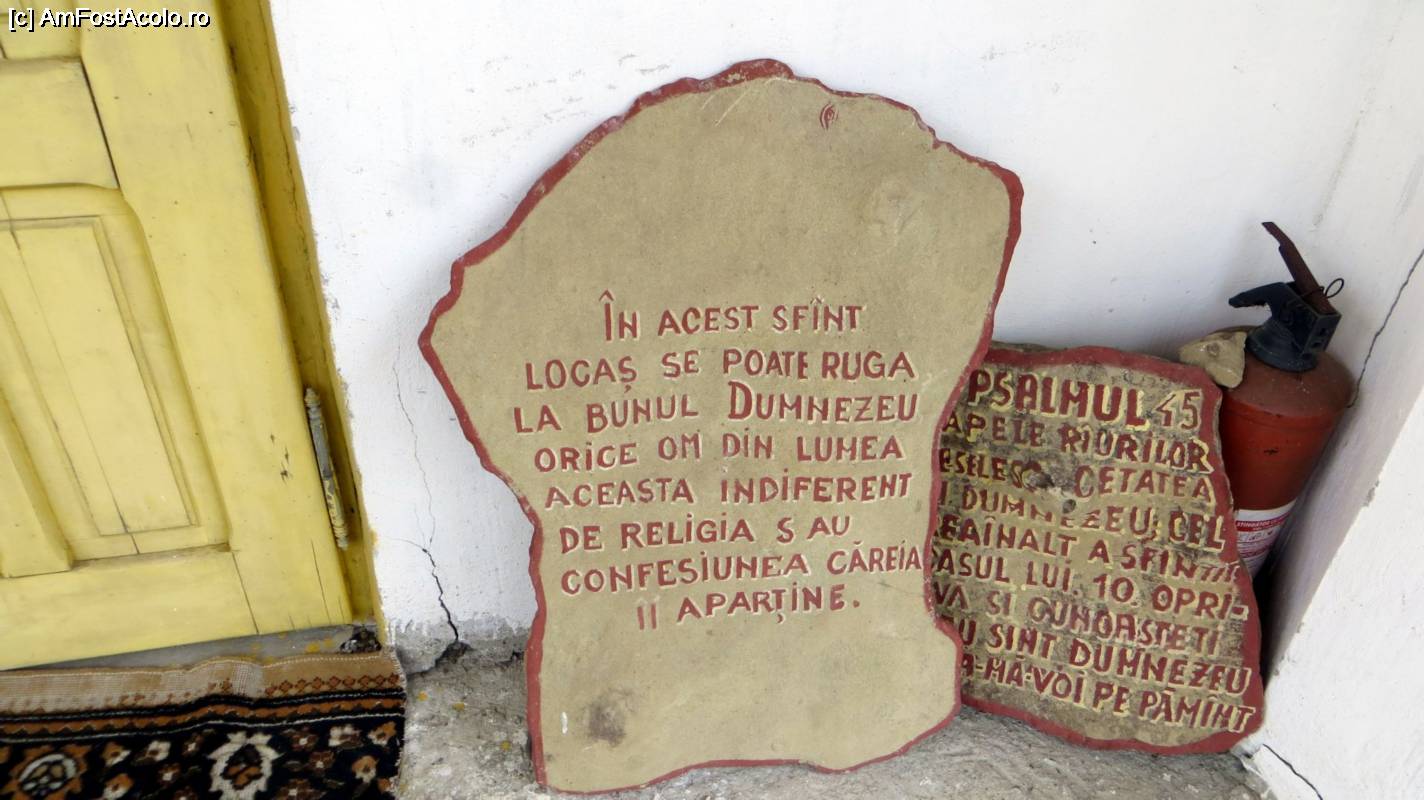 [c] AmFostAcolo.ro
ÎN ACEST SFÎNT
LOCAȘ SE POATE RUGA
LA BUNUL DUMNEZEU
ORICE OM DIN LUMEA
ACEASTA INDIFERENT
DE RELIGIA S AU
CONFESIUNEA CĂREIA
II APARȚINE.
PSALMUL 45
APELE RIURILOR
CETATEA
DUMNEZEU; CEL
A SFINTIT
LUI. 10. OPRI-
SI CUNOASTETI
SINT DUMNEZEU
MĂ-VOI PE PĂMÎNT